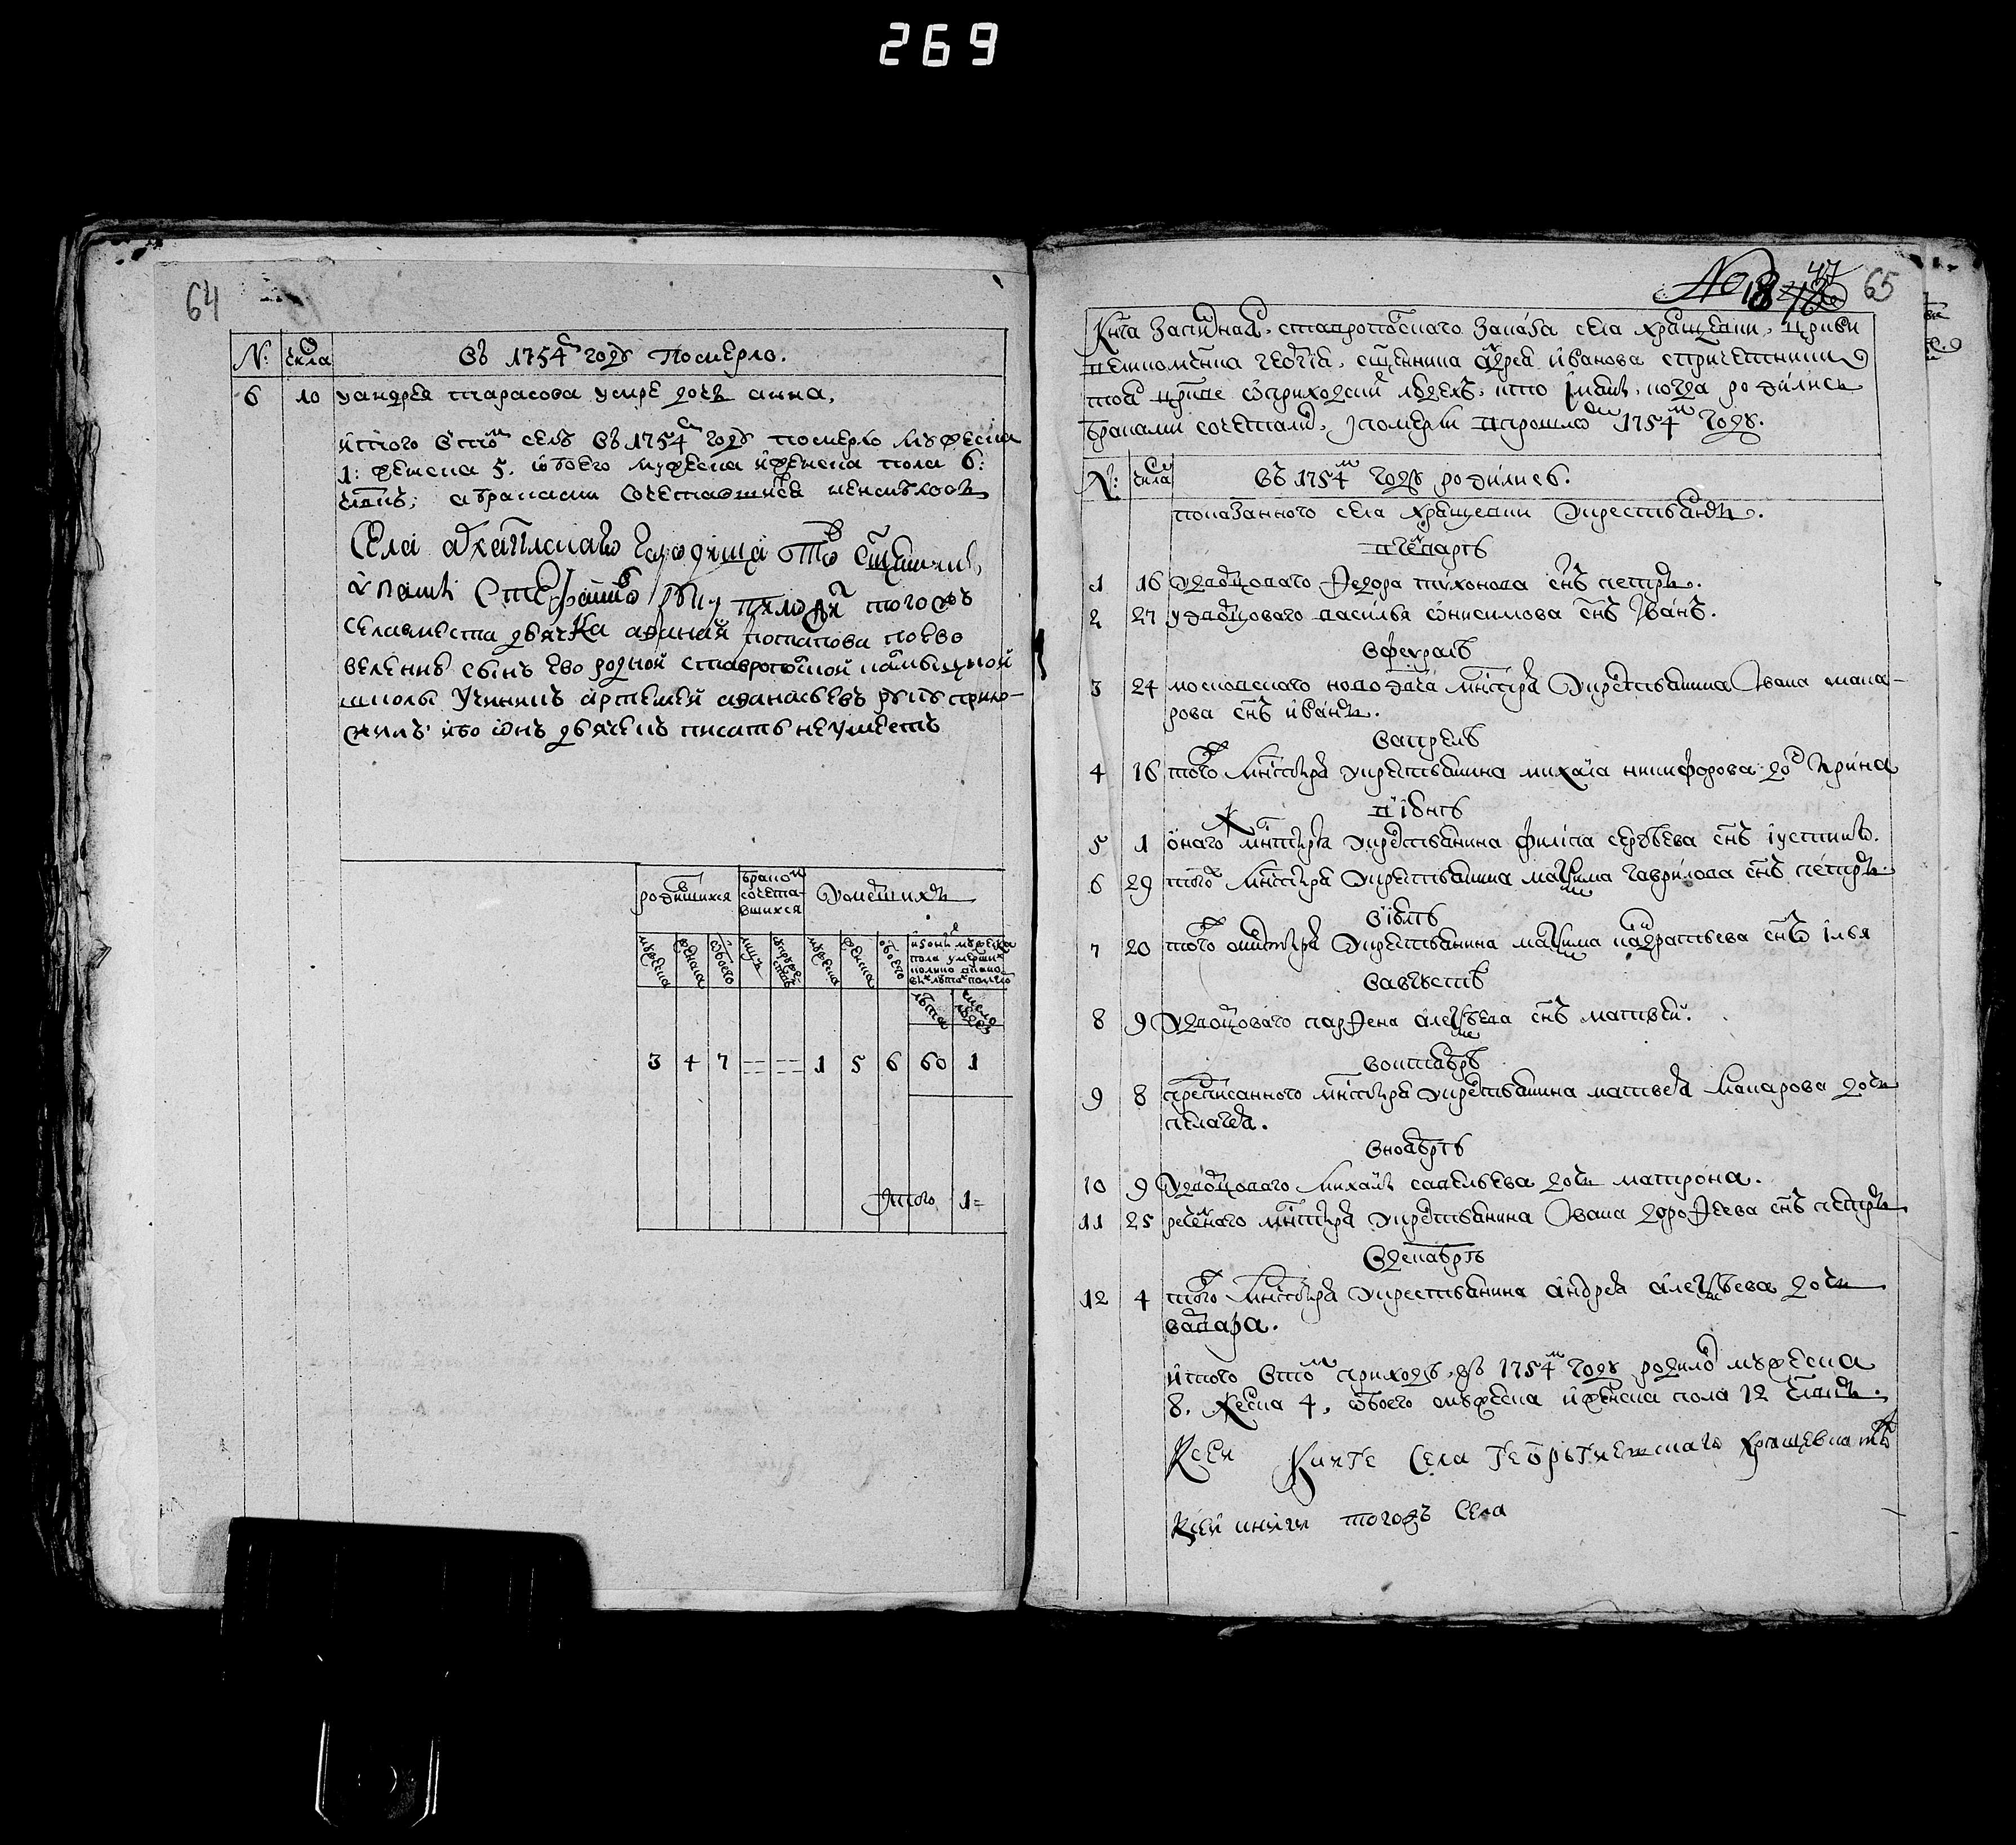 269
64
N: числа Въ 1754м году Померло.
6 10 у андрея тарасова умре дочь анна,
итого втом селѣ въ 1754м году померло мужеска
1: женска 5. обоего мужеска и женска пола 6:
члвкъ; а браками сочетавшихся неимѣлось
села городища
того жъ
села вместо дьячка афанася потапова по ево
велению сынъ ево родной ставропольской
школы ученикъ артемей афанасьевъ руку прило-
жилъ: ибо онъ дьячекъ писать неумеетъ
родившихся браком сочета-вшихся умершихъ
мужеска женска обоего мужеска женска обоего
лѣта число людей
3 4 7 = = = = 1 5 6 60 1
Итого 1=
No 18 47 65
Книга записная, ставропольскаго заказа села хрящевки, цркви
великомченика георгия, сщенника андрея иванова спричетники
тоя цркве оприходскихъ людехъ, кто имянъ, когда родились
браками сочетались, и померли впрошломъ 1754м году.
N: числа Въ 1754м году родились.
показанного села хрящевки у крестьянъ.
вгенварѣ
1 16 у дворцоваго федора тихонова снъ петръ.
2 27 у дворцового василья онисимова снъ Иванъ.
Вфевралѣ
3 24 московского новодвча мнстря у крестьянина Ивана мака-
рова снъ иванъ.
Вапрелѣ
4 16 того мнстыря у крестьянина михаила никифорова дочь Ирина
в июнѣ
5 1 онаго мнстыря у крестьянина филипа сергѣева снъ иустинъ.
6 29 того мнстыря у крестьянина максима гаврилова снъ петръ.
Виюлѣ
7 20 того мнстыря у крестьянина максима панкратьева снъ илья
Вавгустѣ
8 9 у дворцоваго парфена алексѣева снъ матвей.
Воктябрѣ
9 8 преписанного мнстыря у крестьянина матвея макарова дочь
пелагея.
Вноябрѣ
10 9 у дворцоваго михаила савельева дочь матрона.
11 25 реченого мнстыря у крестьянина Ивана дорофеева снъ петръ
Вдекабрѣ
12 4 того мнстыря у крестьянина андрея алексѣева дочь
варвара.
итого втом приходѣ, въ 1754м году родилось мужеска
8. женска 4, обоего мужеска и женска пола 12 члвкъ.
Ксеи книге села Георгиевскаго хрящевка тожъ
Ксеи книги тогожъ села